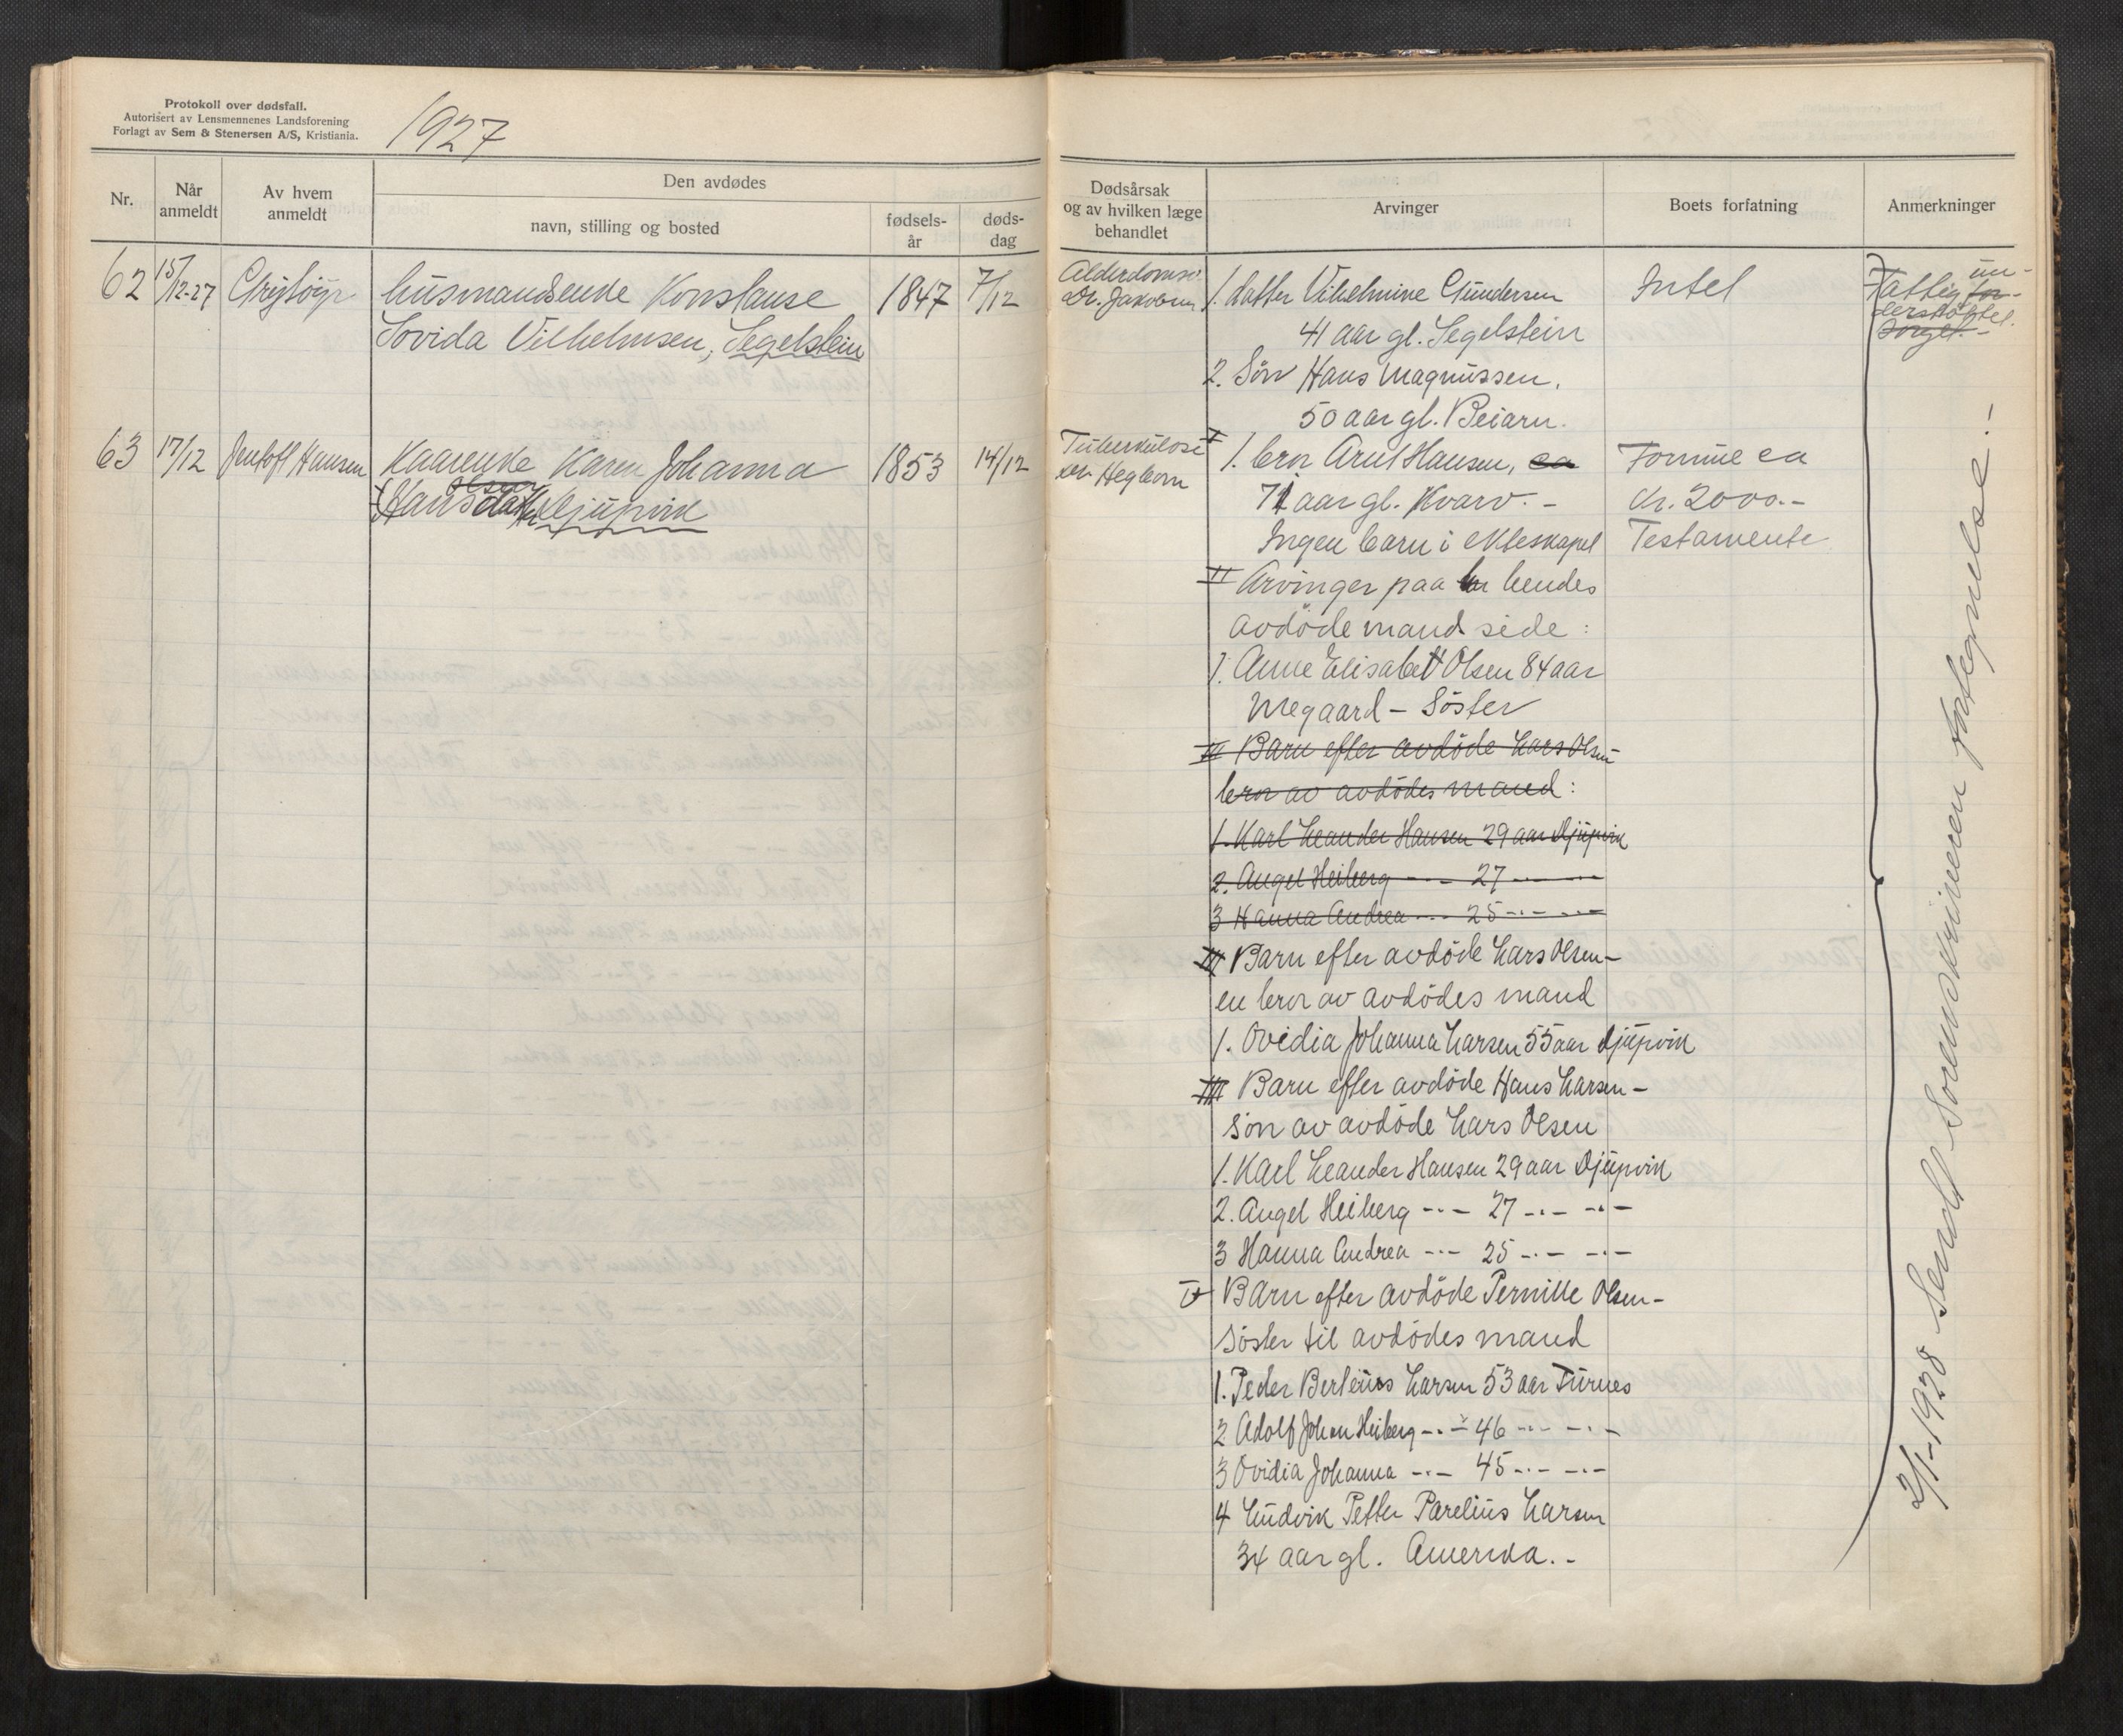 Protokoll over dødsfall.
Autorisert av Lensmennenes Landsforening
Forlagt av Sem & Stenersen A/S, Kristiania.
1927
Nr.
Når anmeldt
Av hvem anmeldt
Den avdødes
navn, stilling og bosted
fødsels-
år
døds-
dag
Dødsårsak
og av hvilken læge
behandlet
Arvinger
Boets forfatning
Anmerkninger
62 15/12-27 husmandsenke Konstanse 1847 7/12
Lovida Vilhelmsen, Segelstein
Alderdoms
Dr. Jakobsen
1. datter Vilhelmine Gundersen
41 aar gl. Segelstein
2. Søn Hans Magnussen,
50 aar gl. Beiarn.
Intet
Fattig un-
derstøttet.
63 17/12 Jentoft Hansen Kaarenke Karen Johanna 1853 14/12
Olsen
Hansdatter Djupvik
Tuberkulose
Dr. Hegbom
I
1. bror Arnt Hansen, ca
71 aar gl. Kvarv. -
Ingen barn i ekteskapet
Formue ca
Kr. 2000.-
Testamente
II Arvinger paa hendes
avdøde mands side :
1. Anne Elisabet Olsen 84 aar
Megaard - Søster
III Barn efter avdøde Lars Olsen
bror av avdødes mand :
1. Karl Leander Hansen 29 aar Djupvik
2. Angel Heiberg -.- 27 -.- -.-
3 Hanna Andrea -.- 25 -.- -.-
III Barn efter avdøde Lars Olsen -
en bror av avdødes mand
1. Ovidia Johanna Larsen 55 aar Djupvik
IIII Barn efter avdøde Hans Larsen -
søn av avdøde Lars Olsen
1. Karl Leander Hansen 29 aar Djupvik
2. Angel Heiberg -.- 27 -.- -.-
3 Hanna Andrea -.- 25 -.- -.-
V Barn efter avdøde Pernille Olsen -
søster til avdødes mand
1. Peder Berteus Larsen 53 aar Furnes
2 Adolf Johan Heiberg -.- 46 -.- -.-
3 Ovidia Johanna -.- 45 -.- -.-
4 Ludvik Petter Parelius Larsen
34 aar gl. Amerika. -
2/1-1928 Sendt Sorenskriveren fortegnelse -!